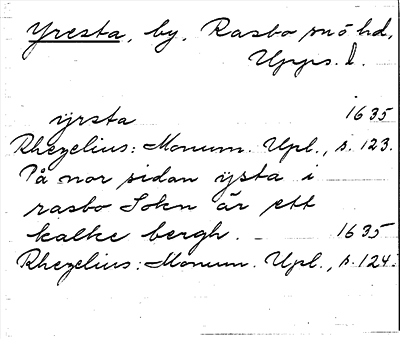 Yresta, by, Rasbo sn ö hd,
Upps. l.
ijrsta 1635
Rhezelius: Monum. Upl., s. 123.
På nor sidan ysta i
rasbo Sokn är ett
kalke bergh. 1635
Rhezelius: Monum. Upl., s. 124.